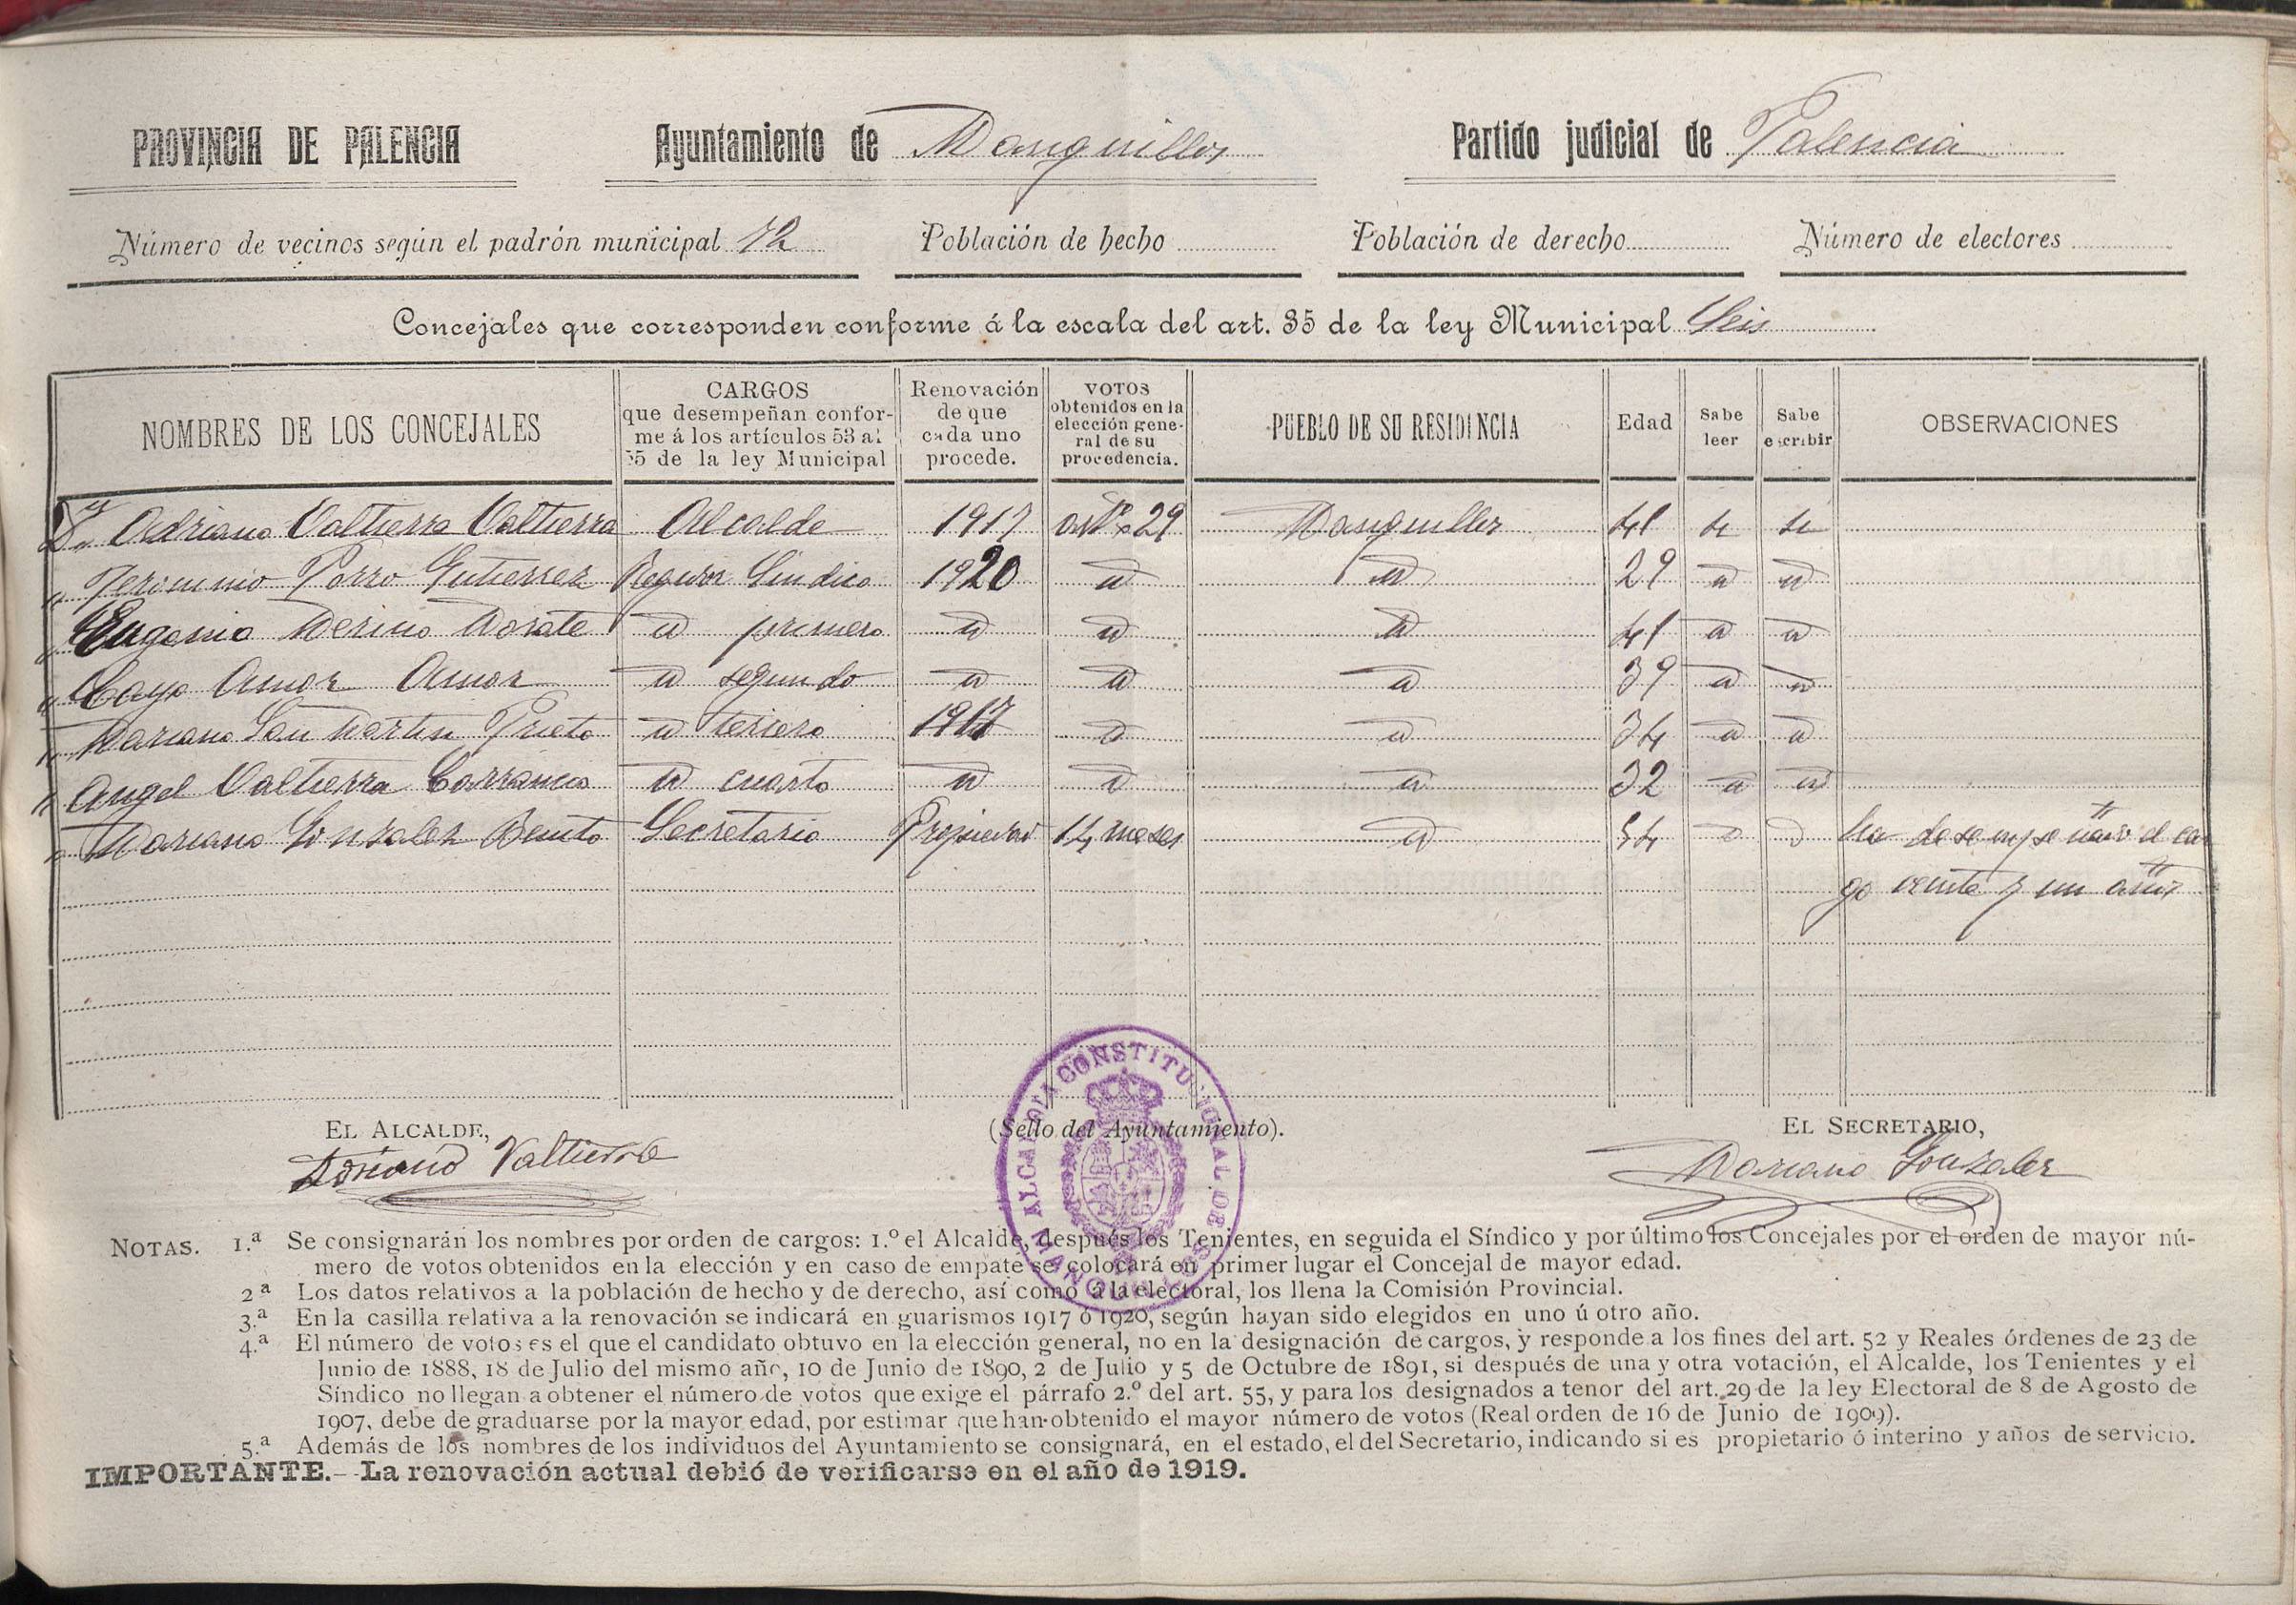 PROVINCIA DE PALENCIA Ayuntamiento de Manquillos Partido judicial de Palencia
Número de vecinos según el padrón municipal 72 Población de hecho Población de derecho Número de electores
Concejales que corresponden conforme á la escala del art. 35 de la ley Municipal Seis
NOMBRES DE LOS CONCEJALES
CARGOS
que desempeñan confor-
me á los artículos 53 al
55 de la ley Municipal
Renovación
de que
cada uno
procede.
VOTOS
obtenidos en la
elección gene-
ral de su
procedencia.
PUEBLO DE SU RESIDENCIA
Edad
Sabe
leer
Sabe
escribir
OBSERVACIONES
Dn Adriano Valtierra Valtierra Alcalde 1917 artº 29 Manquillos 41 si si
" Jeronimo Porro Gutierrez Regidor Sindico 1920 " " 29 " "
" Eugenio Merino Morate " primero " " " 41 " "
" Cayo Amor Amor " segundo " " " 39 " "
" Mariano San Martin Prieto " tercero 1917 " " 34 " "
" Angel Valtierra Carrancio " cuarto " " " 32 " "
" Mariano Gonzalez Benito Secretario Propiedad 14 meses " 54 " " Ha desempeñado el car
go veinte y un años
EL ALCALDE, (Sello del Ayuntamiento). EL SECRETARIO,
Adriano Valtierra Mariano Gonzalez
ALCALDIA CONSTITUCIONAL DE MANQUILLOS
NOTAS. 1.ª Se consignarán los nombres por orden de cargos: 1.º el Alcalde, después los Tenientes, en seguida el Síndico y por último los Concejales por el orden de mayor nú-
mero de votos obtenidos en la elección y en caso de empate se colocará en primer lugar el Concejal de mayor edad.
2ª Los datos relativos a la población de hecho y de derecho, así como á la electoral, los llena la Comisión Provincial.
3.ª En la casilla relativa a la renovación se indicará en guarismos 1917 ó 1920, según hayan sido elegidos en uno ú otro año.
4.ª El número de votos es el que el candidato obtuvo en la elección general, no en la designación de cargos, y responde a los fines del art. 52 y Reales órdenes de 23 de
Junio de 1888, 18 de Julio del mismo año, 10 de Junio de 1890, 2 de Julio y 5 de Octubre de 1891, si después de una y otra votación, el Alcalde, los Tenientes y el
Síndico no llegan a obtener el número de votos que exige el párrafo 2.º del art. 55, y para los designados a tenor del art. 29 de la ley Electoral de 8 de Agosto de
1907, debe de graduarse por la mayor edad, por estimar que han obtenido el mayor número de votos (Real orden de 16 de Junio de 1909).
5.ª Además de los nombres de los individuos del Ayuntamiento se consignará, en el estado, el del Secretario, indicando si es propietario ó interino y años de servicio.
IMPORTANTE.—La renovación actual debió de verificarse en el año de 1919.